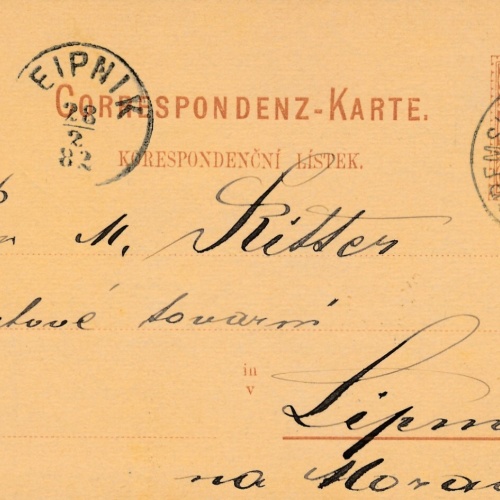 EIPNIK
28
2
82
CORRESPONDENZ-KARTE.
KORESPONDENČNÍ LÍSTEK.
M. Ritter
tové tovární
in
v
Lipn
na Morav